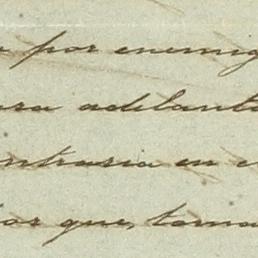 por enemig
ra adelant
ntraria en e
por que, toma